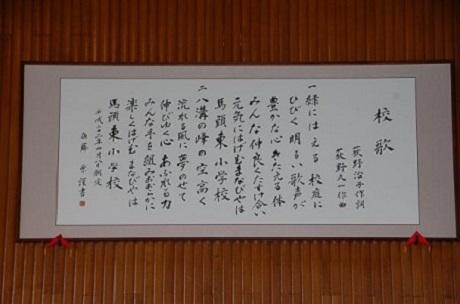 校歌
荻野治子作詞
荻野久一作曲
一緑にはえる校庭に
ひびく明るい歌声が
豊かな心きたえる体
みんな仲良くたすけ合い
元気にはげむまなびやは
馬頭東小学校
二八溝の峰の空高く
流れる風に夢のせて
伸びゆく心あふれる力
みんな手を組みおおらかに
楽しくはげむまなびやは
馬頭東小学校